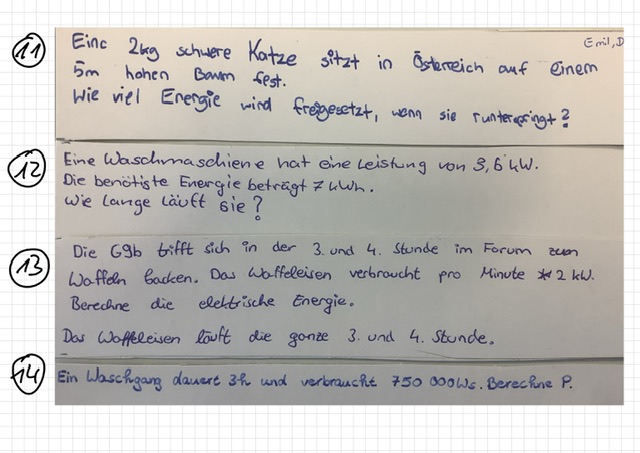 11
Emil, D
Eine 2kg schwere Katze sitzt in Österreich auf einem
5m hohen Baum fest.
Wie viel Energie wird freigesetzt, wenn sie runterspringt?
12
Eine Waschmaschiene hat eine Leistung von 3,6 kW.
Die benötigte Energie beträgt 7 kWh.
Wie lange läuft sie?
13
Die G9b trifft sich in der 3. und 4. Stunde im Forum zum
Waffeln backen. Das Waffeleisen verbraucht pro Minute 2 kW.
Berechne die elektrische Energie.
Das Waffeleisen läuft die ganze 3. und 4. Stunde.
14
Ein Waschgang dauert 3h und verbraucht 750 000Ws. Berechne P.